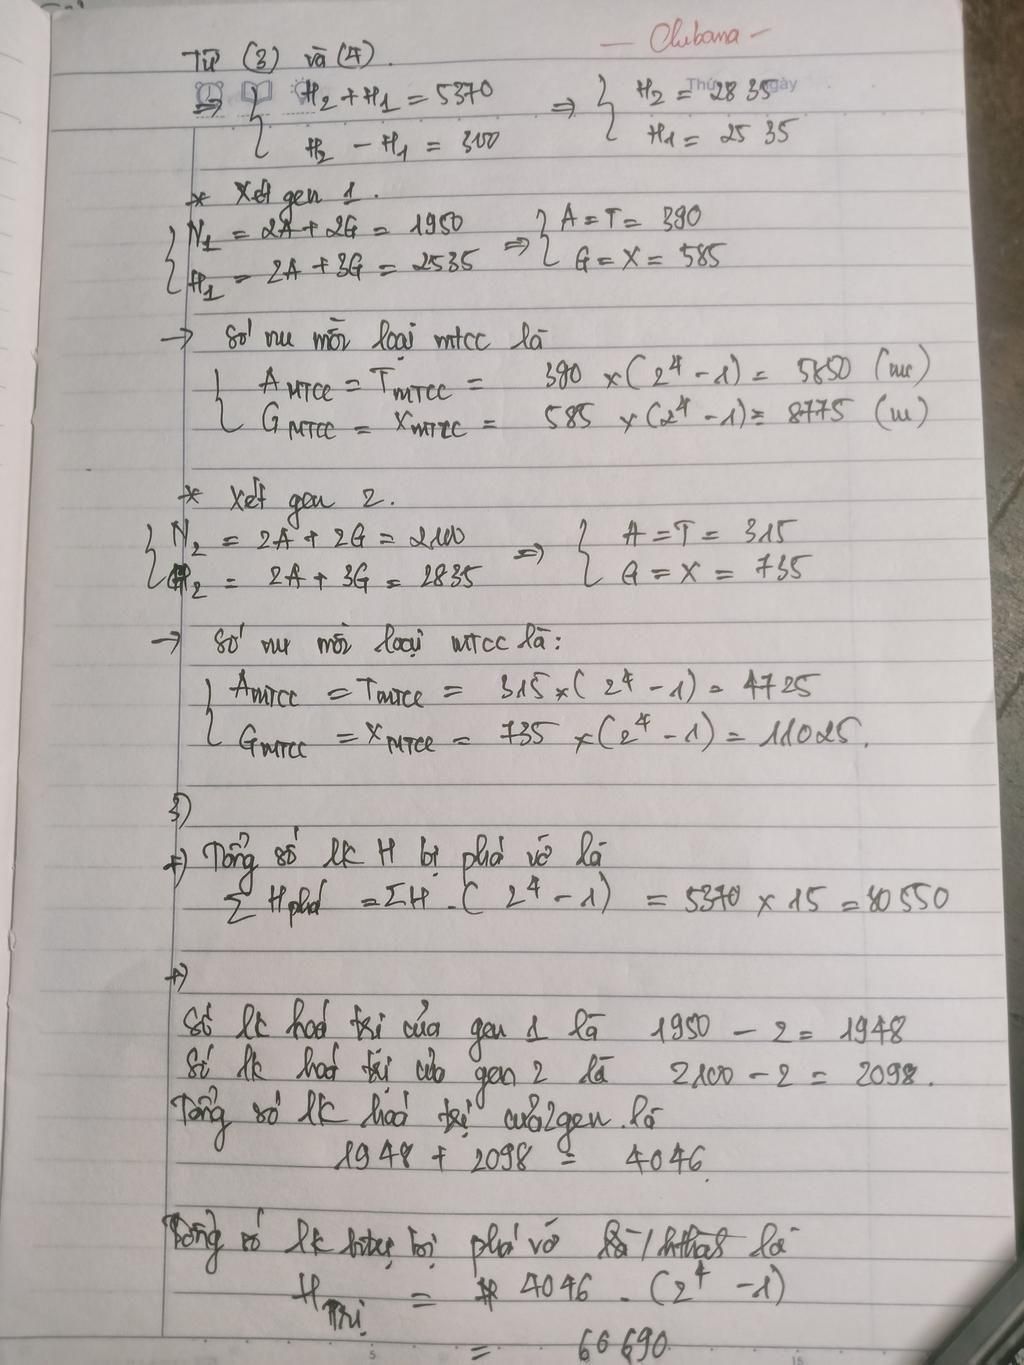 — Chubana —
Từ (3) và (4).
Thứ Ngày
=> { H2 + H1 = 5370 => { H2 = 2835
H2 - H1 = 300 H1 = 2535
* Xét gen 1.
{ N1 = 2A + 2G = 1950 => { A = T = 390
H1 = 2A + 3G = 2535 G = X = 585
→ Số nu mỗi loại mtcc là
{ AMTCC = TMTCC = 390 x (2^4 - 1) = 5850 (nu)
GMTCC = XMTCC = 585 x (2^4 - 1) = 8775 (nu)
* Xét gen 2.
{ N2 = 2A + 2G = 2100 => { A = T = 315
H2 = 2A + 3G = 2835 G = X = 735
→ Số nu mỗi loại MTCC là:
{ AMTCC = TMTCC = 315 x (2^4 - 1) = 4725
GMTCC = XMTCC = 735 x (2^4 - 1) = 11025.
3)
+) Tổng số lk H bị phá vỡ là
∑ H phá = ∑H . (2^4 - 1) = 5370 x 15 = 80550
+)
Số lk hoá trị của gen 1 là 1950 - 2 = 1948
Số lk hoá trị của gen 2 là 2100 - 2 = 2098.
Tổng số lk hoá trị của 2 gen là
1948 + 2098 = 4046.
Tổng số lk bị phá vỡ là
H Trị = 4046 . (2^4 - 1)
= 60690